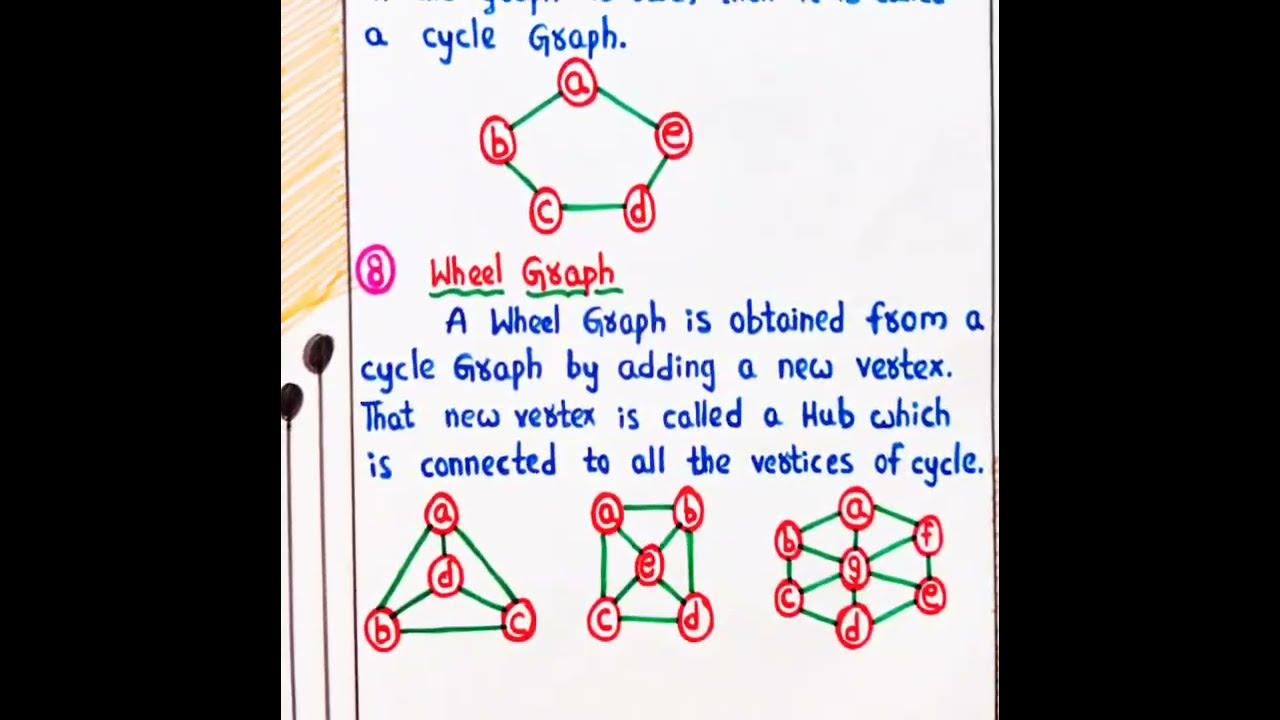 a cycle Graph.
a
b
e
c
d
8 Wheel Graph
A Wheel Graph is obtained from a
cycle Graph by adding a new vertex.
That new vertex is called a Hub which
is connected to all the vertices of cycle.
a
d
b
c
a
b
e
c
d
a
b
f
g
c
e
d